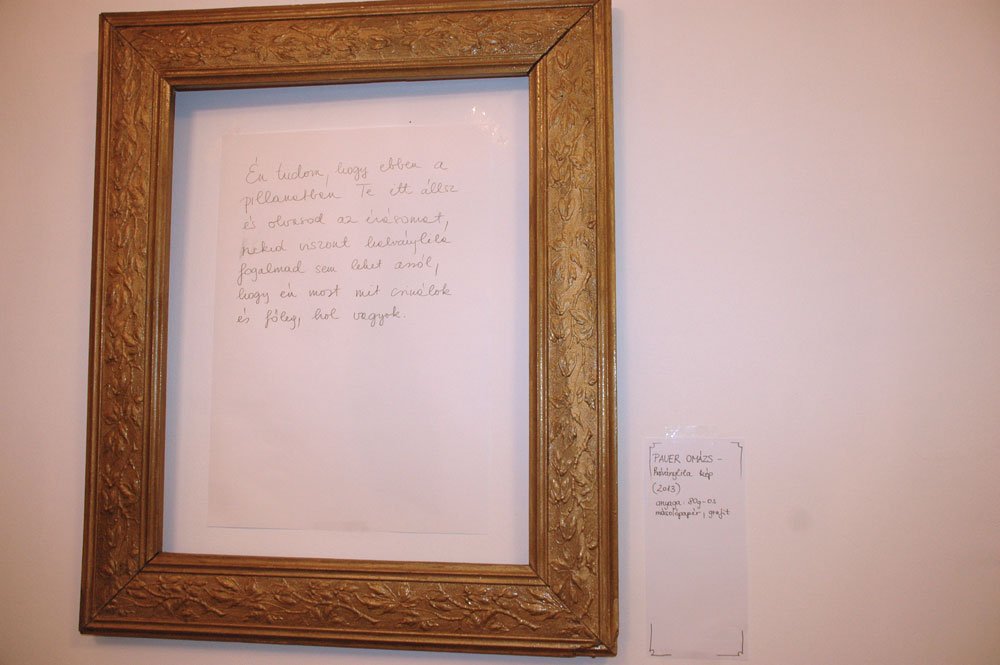 Én tudom, hogy ebben a
pillanatban Te itt állsz
és olvasod az írásomat,
neked viszont halványlila
fogalmad sem lehet arról,
hogy én most mit csinálok
és főleg, hol vagyok.
PAUER OMÁZS -
halványlila kép
(2013)
anyaga: 80g-os
másolópapír, grafit